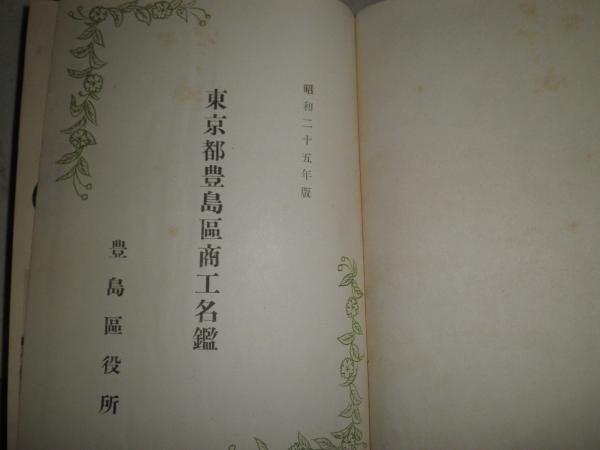 昭和二十五年版
東京都豊島區商工名鑑
豊島區役所